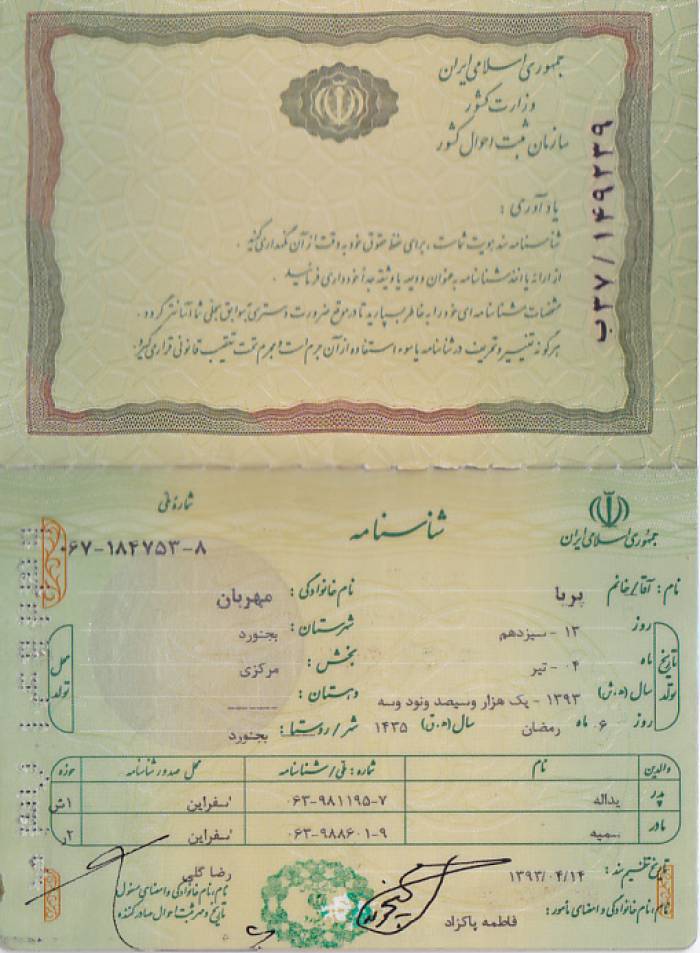 جمهوری اسلامی ایران
وزارت کشور
سازمان ثبت احوال کشور
ب۳۷/۱۴۹۲۳۹
یادآوری :
شناسنامه سند هویت شماست ، برای حفظ حقوق خود به دقت از آن نگهداری کنید .
از ارائه یا اخذ شناسنامه به عنوان ودیعه یا وثیقه جداً خودداری فرمائید .
مشخصات شناسنامه ای خود را به خاطر بسپارید تا در موقع ضرورت دسترسی به سوابق سجلی شما آسانتر گردد .
هرگونه تغییر و تحریف در شناسنامه یا سوء استفاده از آن جرم است و مجرم تحت تعقیب قانونی قرار می گیرد .
جمهوری اسلامی ایران
شناسنامه
شماره ملی
۰۶۷-۱۸۴۷۵۳-۸
نام : آقا/خانم پریا نام خانوادگی : مهربان
تاریخ تولد روز ۱۳ - سیزدهم شهرستان : بجنورد محل تولد
ماه ۰۴ - تیر بخش : مرکزی
سال (ه.ش) ۱۳۹۳ - یک هزار وسیصد ونود وسه دهستان : -------
روز ۶ ماه رمضان سال (ه.ق) ۱۴۳۵ شهر/روستا : بجنورد
والدین نام شماره : ملی/شناسنامه محل صدور شناسنامه حوزه
پدر یداله ۰۶۳-۹۸۱۱۹۵-۷ اسفراین ۱ش
مادر سمیه ۰۶۳-۹۸۸۶۰۱-۹ اسفراین ۲ر
تاریخ تنظیم سند : ۱۳۹۳/۰۴/۱۴ رضا گلی
نام، نام خانوادگی و امضای مسئول
تاریخ و مهر ثبت احوال صادرکننده
نام، نام خانوادگی و امضای مأمور : فاطمه پاکزاد